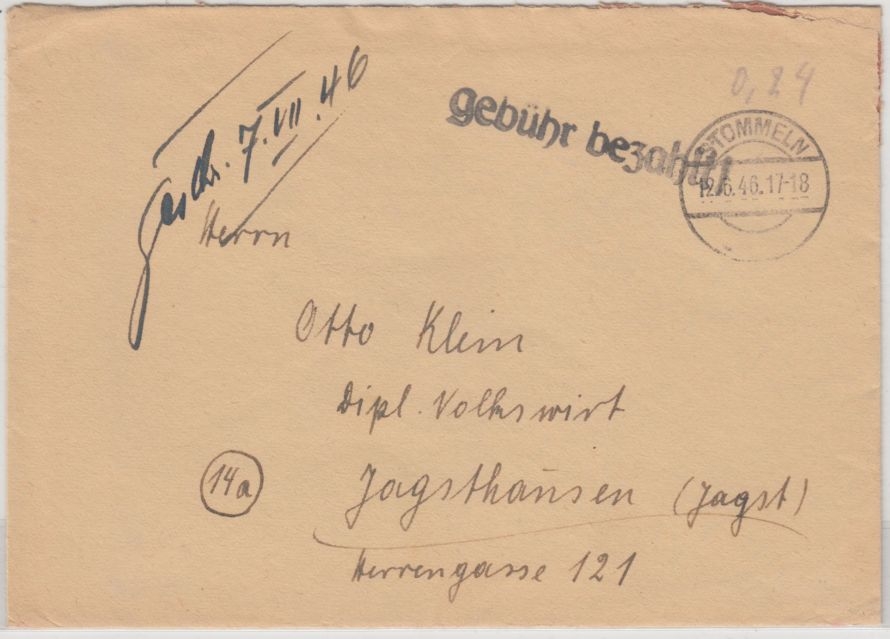 geschr. 7.VII.46
gebühr bezahlt!
0,24
STOMMELN
12.6.46.17-18
Herrn
Otto Klein
Dipl. Volkswirt
14a
Jagsthausen (Jagst)
Herrengasse 121